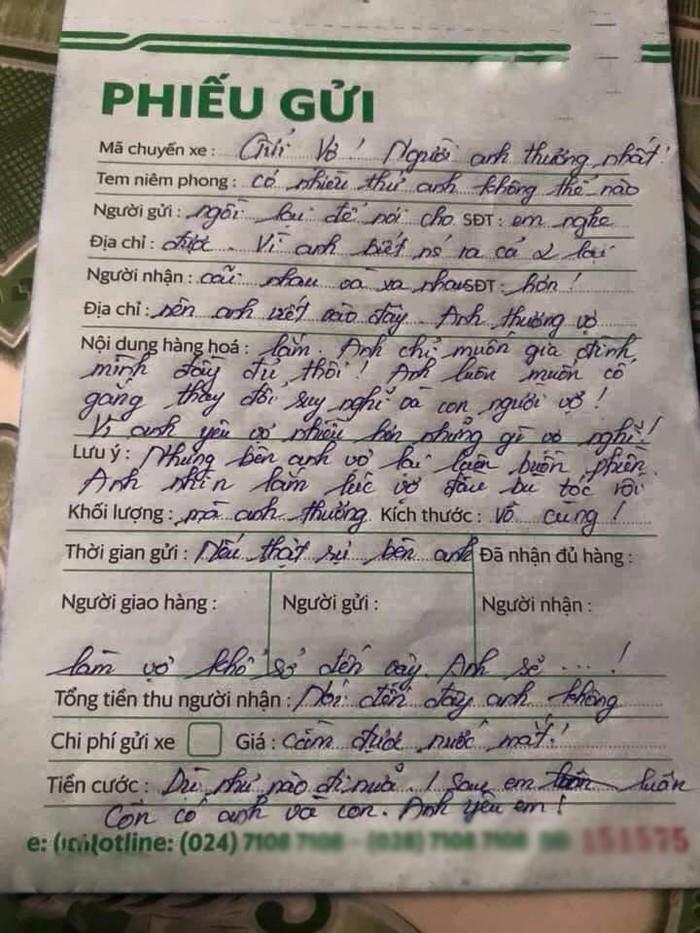 PHIẾU GỬI
Mã chuyến xe : Gửi Vợ ! Người anh thương nhất !
Tem niêm phong : có nhiều thứ anh không thể nào
Người gửi : ngồi lại để nói cho SĐT : em nghe
Địa chỉ : được . Vì anh biết nó ra cả 2 lại
Người nhận : cãi nhau và xa nhau SĐT : hơn !
Địa chỉ : nên anh viết vào đây . Anh thương vợ
Nội dung hàng hoá : lắm . Anh chỉ muốn gia đình
mình đầy đủ thôi ! Anh luôn muốn cố
gắng thay đổi suy nghĩ và con người vợ !
Vì anh yêu vợ nhiều hơn những gì vợ nghĩ !
Lưu ý : Nhưng bên anh vợ lại luôn buồn phiền .
Anh nhìn lắm lúc vợ đầu bù tóc rối
Khối lượng : mà anh thương Kích thước : vô cùng !
Thời gian gửi : Nếu thật sự bên anh Đã nhận đủ hàng :
Người giao hàng : Người gửi : Người nhận :
làm vợ khổ sở đến vậy . Anh sẽ ... !
Tổng tiền thu người nhận : Nói đến đây anh không
Chi phí gửi xe Giá : cầm được nước mắt !
Tiền cước : Dù như nào đi nữa ! Sau em luôn
Còn có anh và con . Anh yêu em !
otline: (024) 7108 7108 - (028) 7108 7108 151575